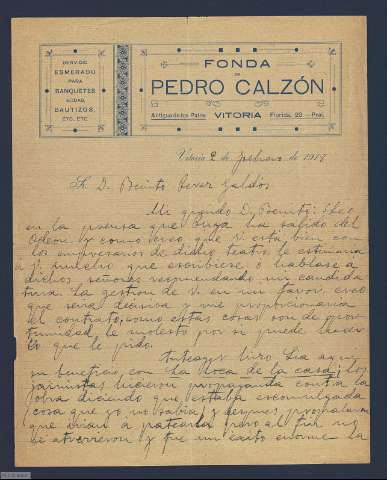 SERVICIO
ESMERADO
PARA
BANQUETES
BODAS,
BAUTIZOS,
ETC., ETC.
FONDA
DE
PEDRO CALZÓN
Antigua de los Patos VITORIA Florida, 20 - Pral.
Vitoria 2 de febrero de 1918
Sr. D. Benito Perez Galdós
Mi querido D. Benito: Leo
en la prensa que Borrás ha salido del
Odeon. Y como creo que V. está bien con
los empresarios de dicho teatro, le estimaría
á V. mucho que escribiese ó hablase a
dichos señores recomendando mi candida
tura. La gestion de V. en mi favor, creo
que será decisiva y me proporcionaría
el contrato; como estas cosas son de opor
tunidad, le molesto por si puede hacer
lo que le pido.
hizo
su beneficio, con La loca de la casa; los
jaimistas hicieron propaganda contra la
obra diciendo que estaba excomulgada
(cosa que yo no sabía) y despues propalaron
que irían a patearla pero al fin no
se atrevieron y fue un éxito enorme. La